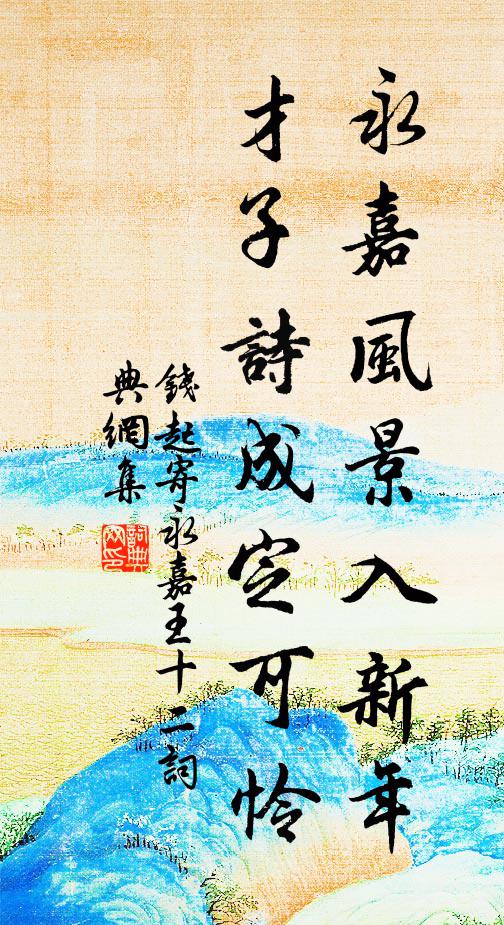 永嘉風景入新年
才子詩成定可憐
錢起寄永嘉王十二詞
典網集
詞典